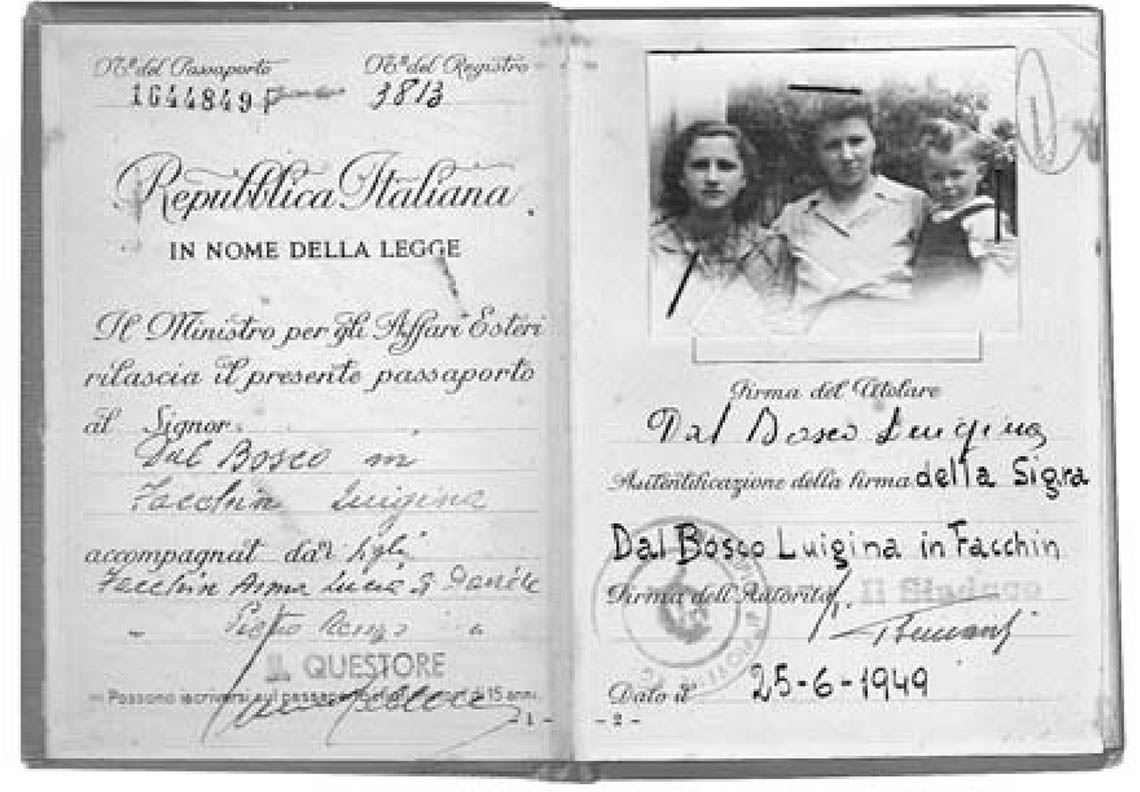 Nº del Passaporto
1644849 P
Nº del Registro
3813
Repubblica Italiana
IN NOME DELLA LEGGE
Il Ministro per gli Affari Esteri
rilascia il presente passaporto
al Signor
Dal Bosco in
Facchin Luigina
accompagnat dai figli
Facchin Anna Lucia di Daniele
" Pietro Renzo "
IL QUESTORE
Possono iscriversi sul passaporto 15 anni.
- 1 -
Firma del titolare
Dal Bosco Luigina
Autentificazione della firma della Sigra
Dal Bosco Luigina in Facchin
Firma dell'Autorità Il Sindaco
Dato a 25-6-1949
- 2 -